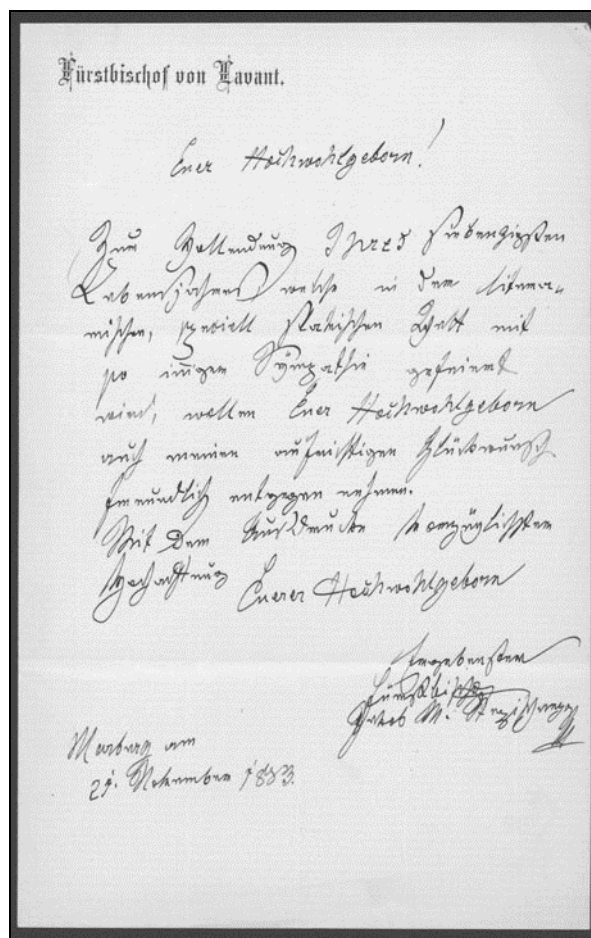 Fürstbischof von Lavant.
Euer Hochwohlgeborn!
Zur Vollendung Ihres siebenzigsten
Lebensjahres, welche in der litera-
rischen, speciell slavischen Welt mit
so inniger Sympathie gefeiert
wird, wollen Euer Hochwohlgeborn
auch meinen aufrichtigen Glückwunsch
freundlich entgegen nehmen.
Mit dem Ausdrucke vorzüglichster
Hochachtung Euerer Hochwohlgeborn
ergebenster
Fürstbischof
Jakob M. Stepischnegg
Marburg am
21. November 1883.